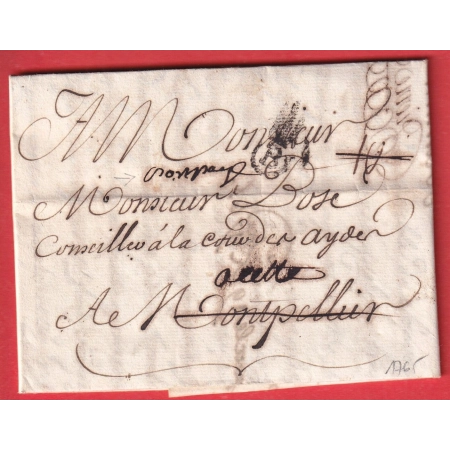 A Monsieur
Monsieur Bose
Conseiller à la cour des aydes
acette
A Montpellier
1765